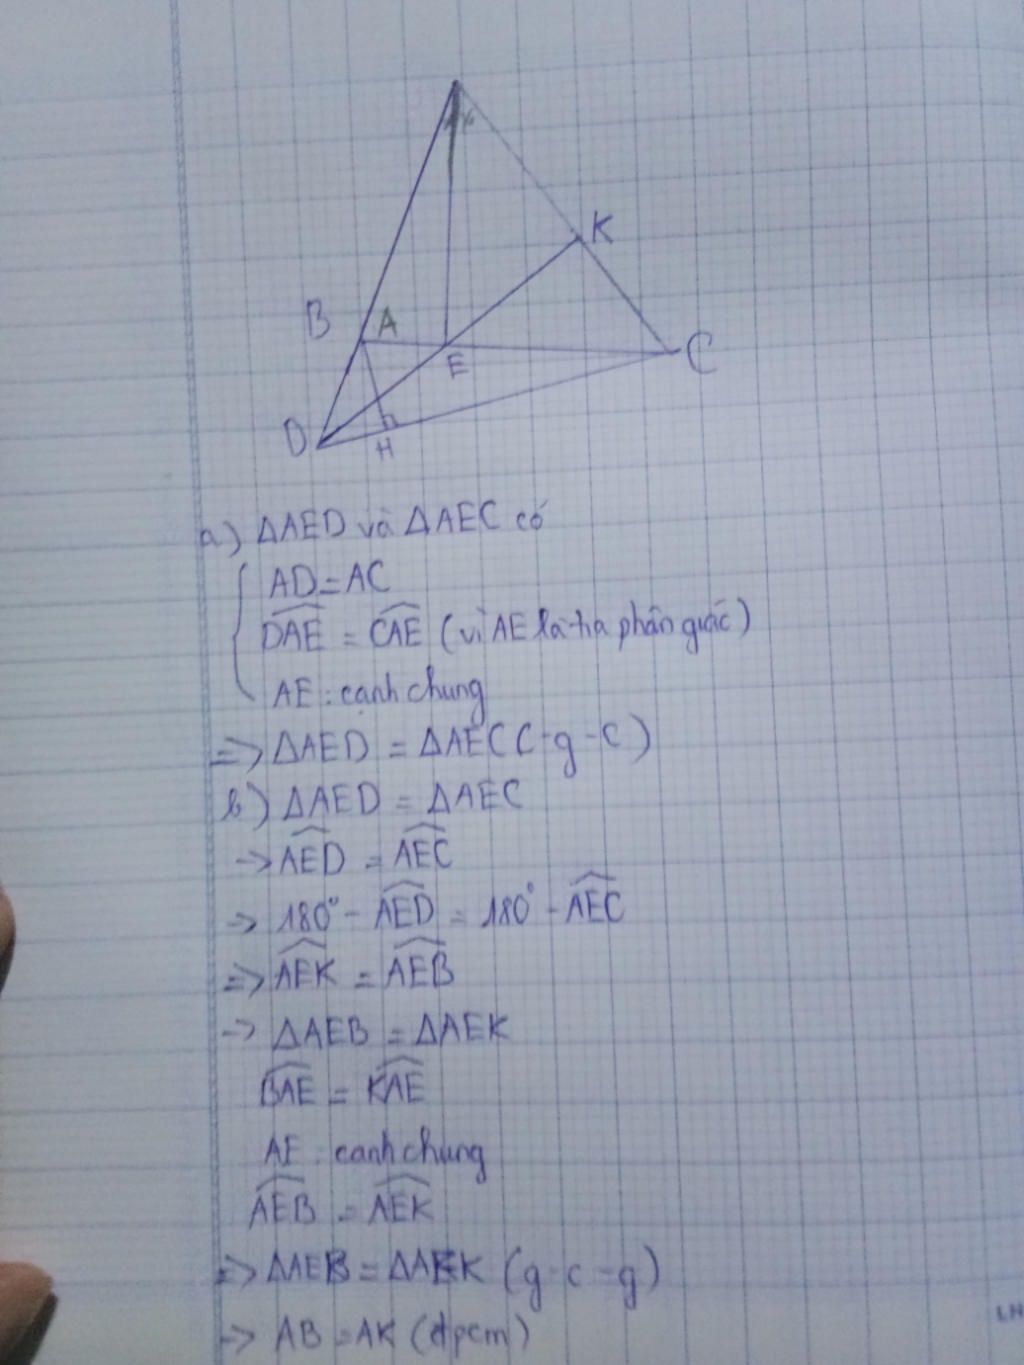 K
B A
E
C
D
H
a) ΔAED và ΔAEC có
AD = AC
\widehat{DAE} = \widehat{CAE} (vì AE là tia phân guác)
AE : cạnh chung
=> ΔAED = ΔAEC C-g-c)
b) ΔAED = ΔAEC
-> \widehat{AED} = \widehat{AEC}
-> 180° - \widehat{AED} = 180° - \widehat{AEC}
=> \widehat{AEK} = \widehat{AEB}
-> ΔAEB = ΔAEK
\widehat{BAE} = \widehat{KAE}
AE : canh chung
\widehat{AEB} = \widehat{AEK}
=> ΔAEB = ΔAEK (g-c-g)
-> AB = AK (đpcm)
LH